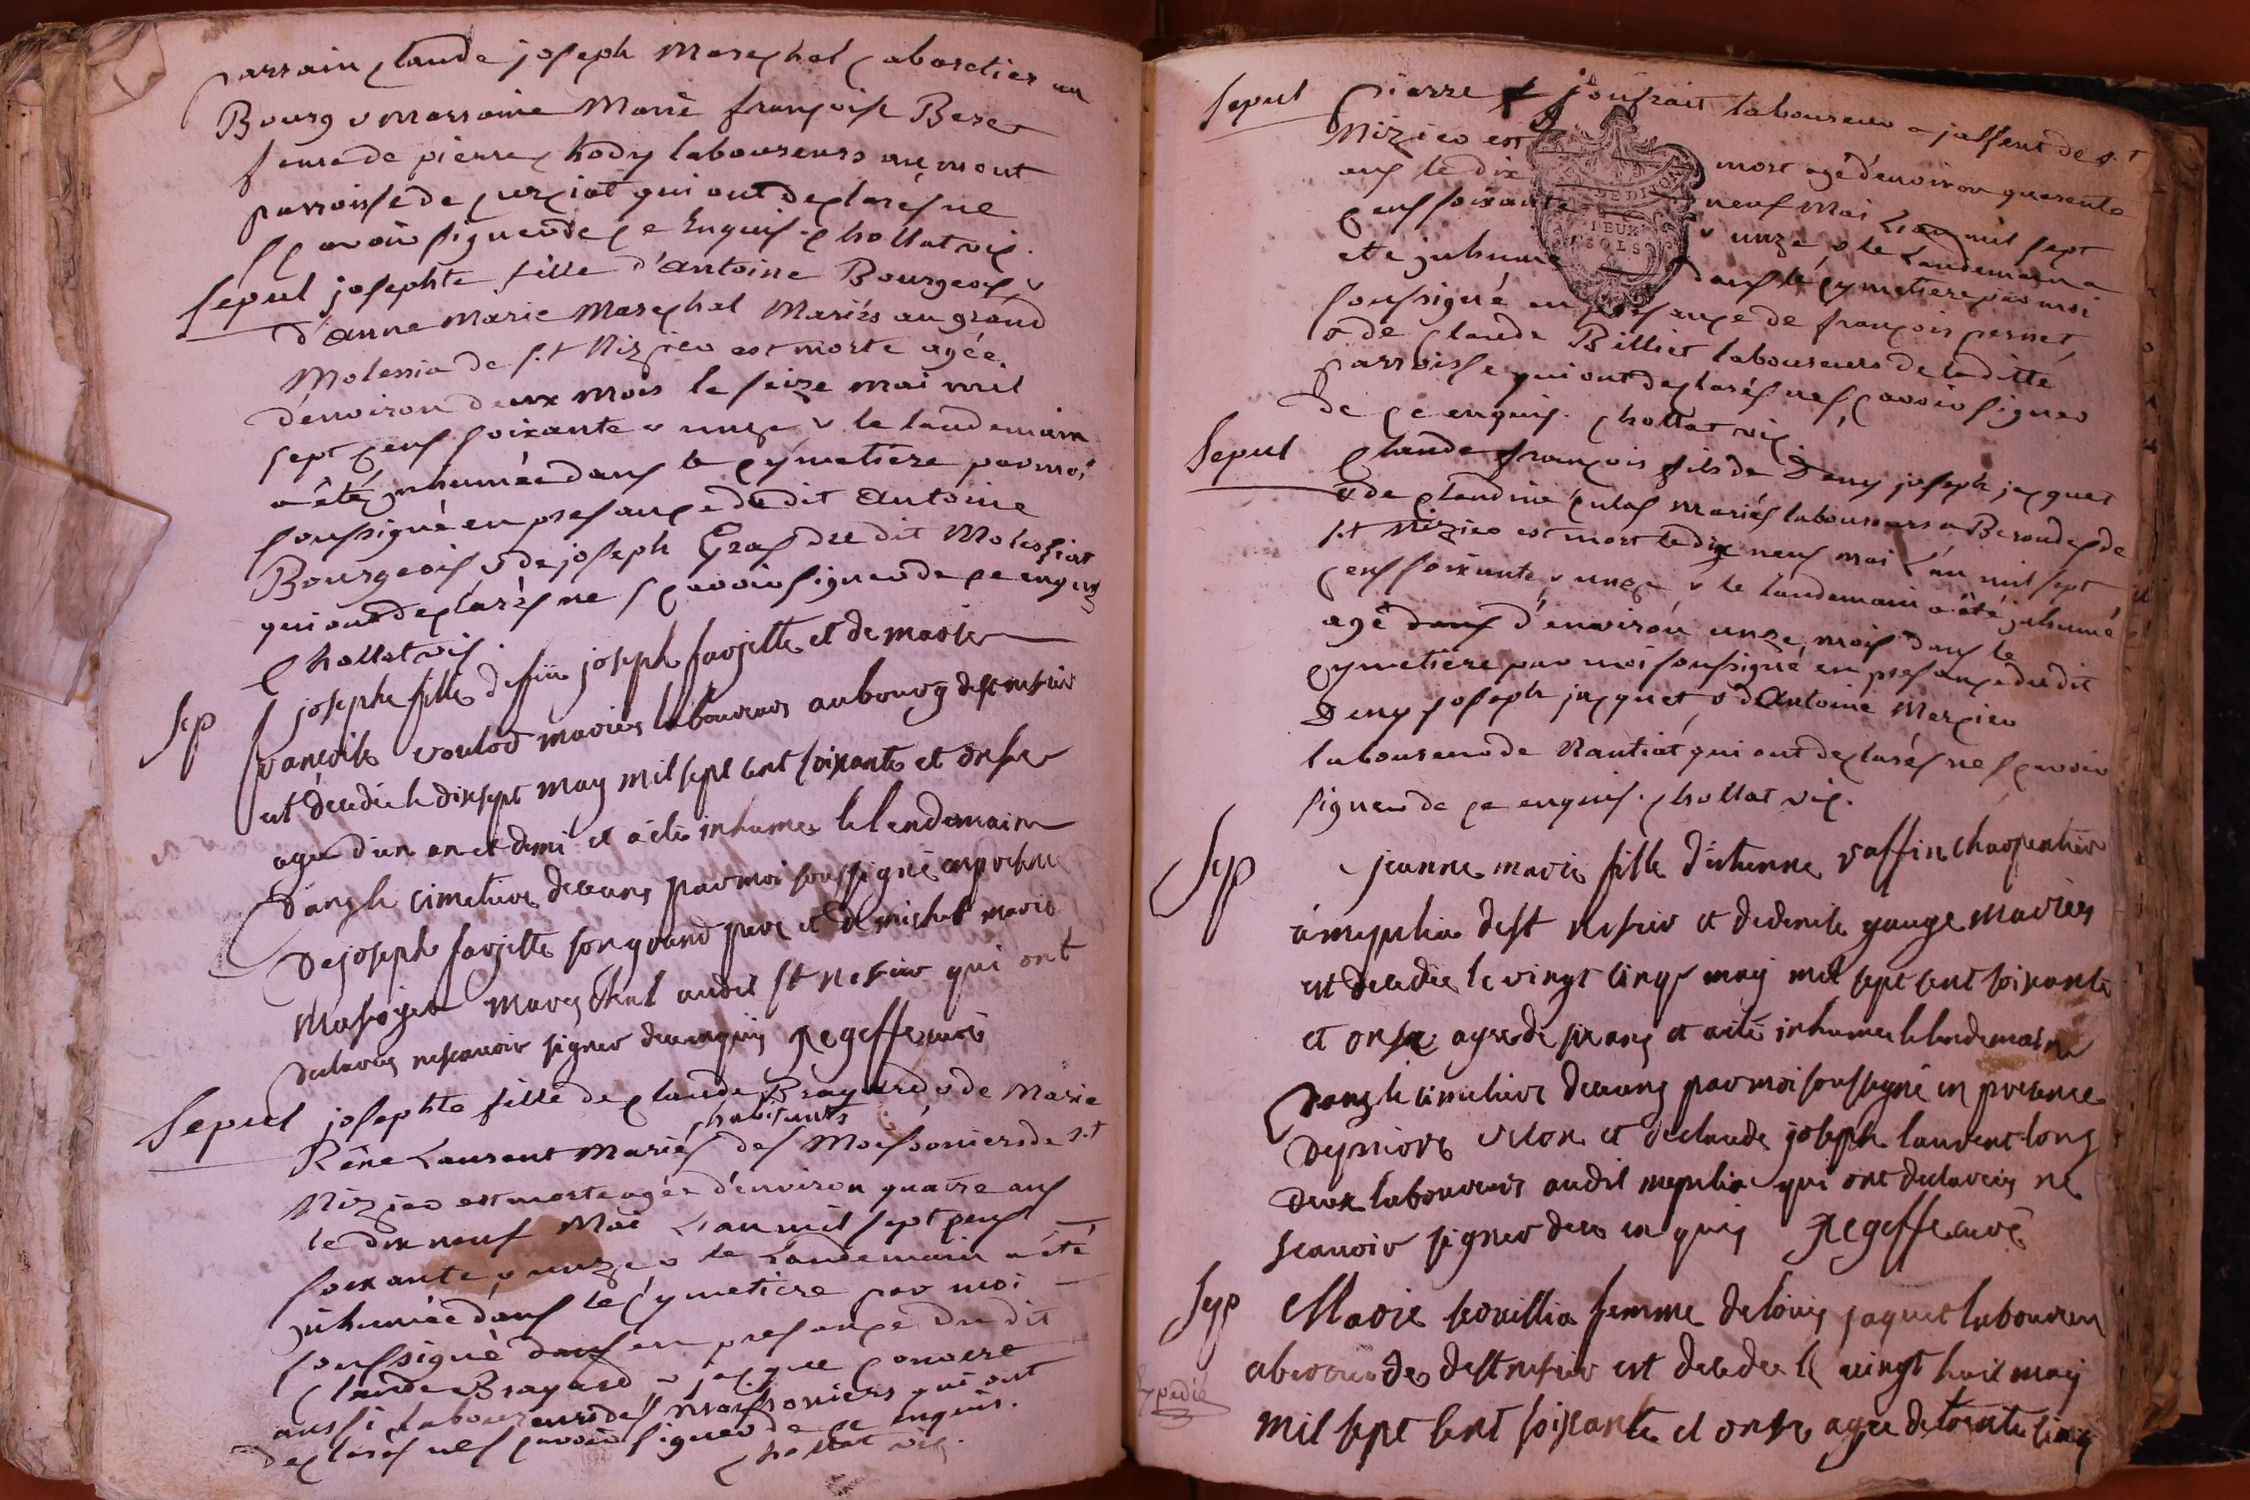 parrain claude joseph Marechal cabaretier au
Bourg & marraine Marie françoise Beret
femme de pierre chody laboureurs au mont
parroisse de curciat qui ont declarés ne
sçavoir signer de ce Enquis. chollat vic.
Sepul josephte fille d'antoine Bourgeois &
d'anne marie marechal Mariés au grand
Molessia de s.t Nizier est morte agée
d'environ deux mois le seize mai mil
sept cens soixante & unze & le landemain
a été inhumée dans le cymetiere par moi
soussigné en presance dudit antoine
Bourgeois & de joseph Gras dudit Molessiat
qui ont declarés ne sçavoir signer de ce enquis
chollat vic.
Sep josephe fille de fiu joseph farjette et de marie
françoise voulod mariés laboureurs au bourg de st nesier
est décédée le dix sept may mil sept cent soixante et onse
agée d'un an et demi et a été inhumée le lendemain
dans le cimetiere de ceans par moi soussigné en presence
de joseph farjette son grand pere et de michel marie
marechal audit st nesier qui ont
declarés ne scavoir signer de ce enquis Regeffe curé
Sepul josephte fille de claude Brayard & de Marie
habitants
Rêne Laurent Mariés des Moissoniers de s.t
Nizier est morte agée d'environ quatre ans
le dix neuf Mai L'an mil sept cens
soixante & unze & le Landemain a été
inhumée dans le cymetiere par moi
soussigné dans en presance dudit
Claude Brayard & jacque Convert
aussi laboureurs des Moissoniers qui ont
declarés ne sçavoir signer de ce enquis.
chollat vic.
Sepul pierre joufrait laboureur a jassent de s.t
Nizier est mort agé d'environ quarente
ans le dix neuf Mai L'an mil sept
cens soixante & unze & le Landemain a
été inhumé dans le cymetiere par moi
soussigné en presance de françois pernet
& de claude Billiet laboureurs de laditte
parroisse qui ont declarés ne sçavoir signer
de ce enquis. chollat vic.
Sepul Claude françois fils de Deny joseph jacquet
& de claudine culas mariés laboureurs a Beroudes de
s.t Nizier est mort le dix neuf mai L'an mil sept
cens soixante & unze & le landemain a été inhumé
agé dans d'environ unze mois dans le
cymetiere par moi soussigné en presance dudit
Deny joseph jacquet & d'Antoine Mercier
laboureur de Nantiat qui ont declarés ne sçavoir
signer de ce enquis. chollat vic.
Sep jeanne marie fille d'estienne vaffin charpentier
a mepulia de st nesier et de denise gauge mariés
est decedée le vingt cinq may mil sept cent soixante
et onse agée de six ans et a été inhumée le lendemain
dans le cimetiere de ceans par moi soussigné en presence
de pierre velon et de claude joseph laurent tous
deux laboureurs audit mepulia qui ont declarés ne
scavoir signer de ce enquis Regeffe curé
Sep Marie femme de louis jaquet laboureur
a beroudes de st nesier est decedée le vingt huit may
mil sept cent soixante et onse agée de trente cinq
expedié
DEUX
SOLS